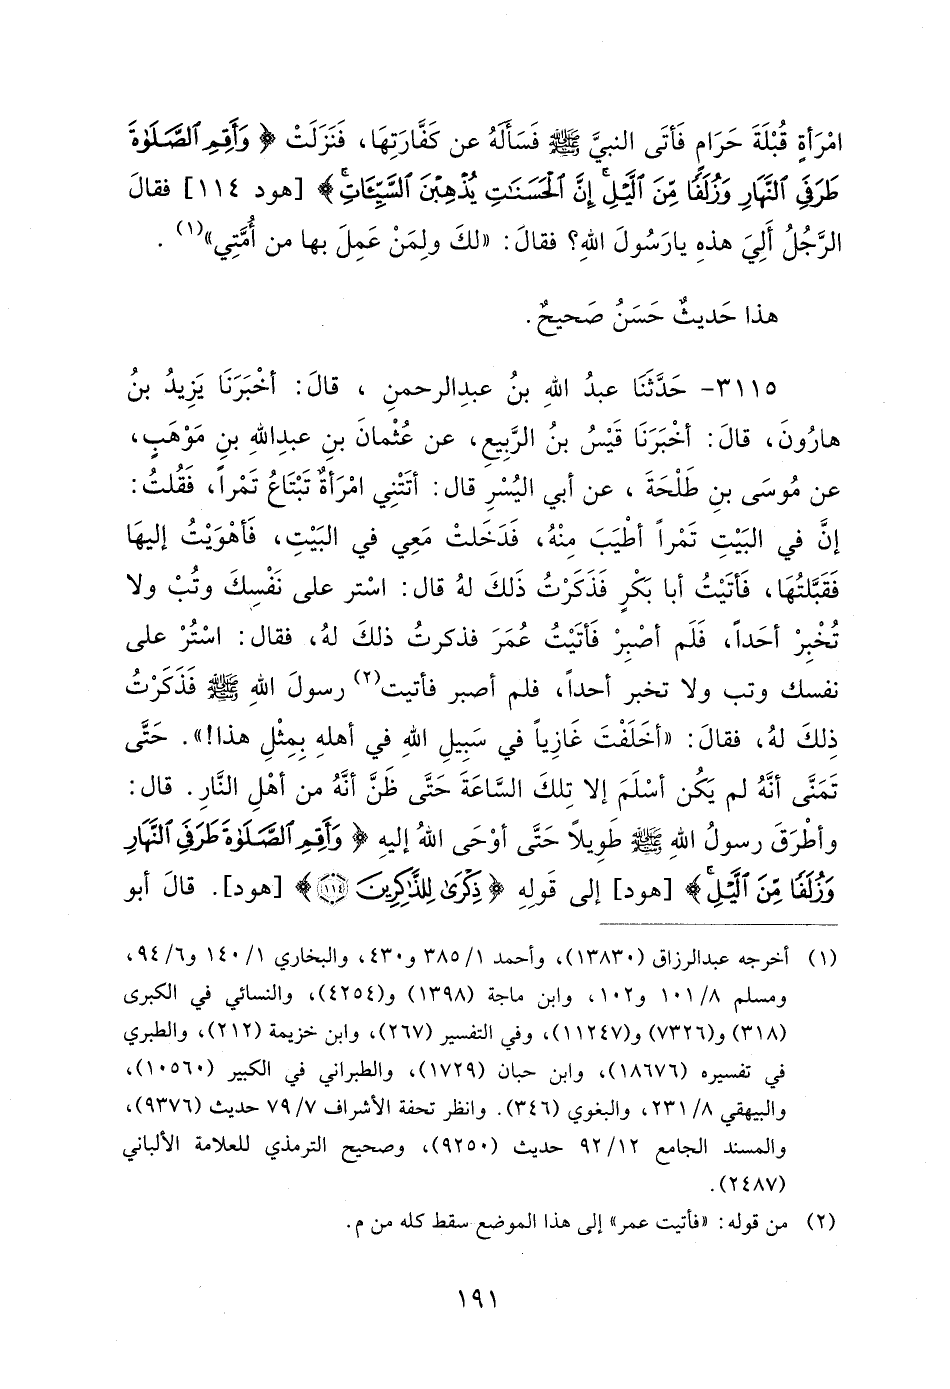 امْرَأةٍ قُبْلَةَ حَرَامٍ فَأتَى النبيَّ ﷺ فَسَألَهُ عن كَفَّارَتِهَا، فَنَزَلَتْ ﴿ وَأَقِمِ ٱلصَّلَوٰةَ
طَرَفَيِ ٱلنَّهَارِ وَزُلَفًا مِّنَ ٱلَّيْلِۚ إِنَّ ٱلْحَسَنَٰتِ يُذْهِبْنَ ٱلسَّيِّـَٔاتِۚ ﴾ [هود ١١٤] فقالَ
الرَّجُلُ أَلِيَ هذهِ يارَسُولَ اللهِ؟ فقالَ: «لكَ ولِمَنْ عَمِلَ بها من أُمَّتِي»(١) .
هذا حَديثٌ حَسَنُ صَحيحٌ.
٣١١٥- حَدَّثَنَا عبدُ اللهِ بنُ عبدِالرحمنِ ، قالَ: أخْبَرَنَا يَزِيدُ بنُ
هارُونَ، قالَ: أخْبَرَنَا قَيْسُ بنُ الرَّبِيعِ، عن عُثْمانَ بنِ عبدِاللهِ بنِ مَوْهَبٍ،
عن مُوسَى بنِ طَلْحَةَ ، عن أبي اليُسْرِ قال: أتَتْنِي امْرَأةٌ تَبْتَاعُ تَمْراً، فَقُلتُ:
إنَّ في البَيْتِ تَمْراً أطْيَبَ مِنْهُ، فَدَخَلتْ مَعِي في البَيْتِ، فَأهْوَيْتُ إليها
فَقَبَّلتُهَا، فَأتَيْتُ أبا بَكْرٍ فَذَكَرْتُ ذَلكَ لهُ قال: اسْتر على نَفْسِكَ وتُبْ ولا
تُخْبِرْ أحَداً، فَلَم أصْبِرْ فَأتَيْتُ عُمَرَ فذكرتُ ذلكَ لهُ، فقال: اسْتُرْ على
نفسك وتب ولا تخبر أحداً، فلم أصبر فأتيت(٢) رسولَ اللهِ ﷺ فَذَكَرْتُ
ذلِكَ لهُ، فقالَ: «أخَلَفْتَ غَازِياً في سَبِيلِ اللهِ في أهلهِ بِمِثْلِ هذا!». حَتَّى
تَمَنَّى أنَّهُ لم يَكُن أسْلَمَ إلا تِلكَ السَّاعَةَ حَتَّى ظَنَّ أنَّهُ من أهْلِ النَّارِ. قال:
وأطْرَقَ رسولُ اللهِ ﷺ طَوِيلاً حَتَّى أوْحَى اللهُ إليهِ ﴿ وَأَقِمِ ٱلصَّلَوٰةَ طَرَفَيِ ٱلنَّهَارِ
وَزُلَفًا مِّنَ ٱلَّيْلِۚ ﴾ [هود] إلى قَولِهِ ﴿ ذِكْرَىٰ لِلذَّٰكِرِينَ ١١٤ ﴾ [هود]. قالَ أبو
(١) أخرجه عبدالرزاق (١٣٨٣٠)، وأحمد ١/ ٣٨٥ و٤٣٠، والبخاري ١/ ١٤٠ و٦/ ٩٤،
ومسلم ٨/ ١٠١ و١٠٢، وابن ماجة (١٣٩٨) و(٤٢٥٤)، والنسائي في الكبرى
(٣١٨) و(٧٣٢٦) و(١١٢٤٧)، وفي التفسير (٢٦٧)، وابن خزيمة (٢١٢)، والطبري
في تفسيره (١٨٦٧٦)، وابن حبان (١٧٢٩)، والطبراني في الكبير (١٠٥٦٠)،
والبيهقي ٨/ ٢٣١، والبغوي (٣٤٦). وانظر تحفة الأشراف ٧/ ٧٩ حديث (٩٣٧٦)،
والمسند الجامع ١٢/ ٩٢ حديث (٩٢٥٠)، وصحيح الترمذي للعلامة الألباني
(٢٤٨٧).
(٢) من قوله: «فأتيت عمر» إلى هذا الموضع سقط كله من م.
١٩١